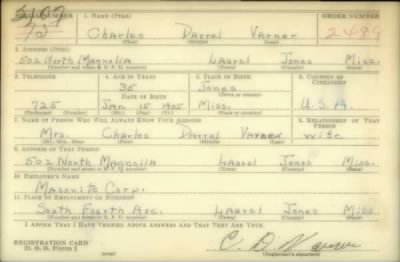 SERIAL NUMBER 1. NAME (Print) ORDER NUMBER
Charles Darrel Varner
(First) (Middle) (Last)
2. ADDRESS (Print)
502 North Magnolia Laurel Jones Miss.
(Number and street or R. F. D. number) (Town) (County) (State)
3. TELEPHONE 4. AGE IN YEARS 5. PLACE OF BIRTH 6. COUNTRY OF CITIZENSHIP
35 Jones
DATE OF BIRTH (Town or county)
725 Jan 15 1905 Miss. U.S.A.
(Exchange) (Number) (Mo.) (Day) (Yr.) (State or country)
7. NAME OF PERSON WHO WILL ALWAYS KNOW YOUR ADDRESS 8. RELATIONSHIP OF THAT PERSON
Mrs. Charles Darrel Varner wife
(Mr., Mrs., Miss) (First) (Middle) (Last)
9. ADDRESS OF THAT PERSON
502 North Magnolia Laurel Jones Miss.
(Number and street or R. F. D. number) (Town) (County) (State)
10. EMPLOYER'S NAME
Masonite Corp.
11. PLACE OF EMPLOYMENT OR BUSINESS
South Fourth Ave. Laurel Jones Miss
(Number and street or R. F. D. number) (Town) (County) (State)
I AFFIRM THAT I HAVE VERIFIED ABOVE ANSWERS AND THAT THEY ARE TRUE.
REGISTRATION CARD
D. S. S. Form 1 C. D. Varner
(Registrant's signature)